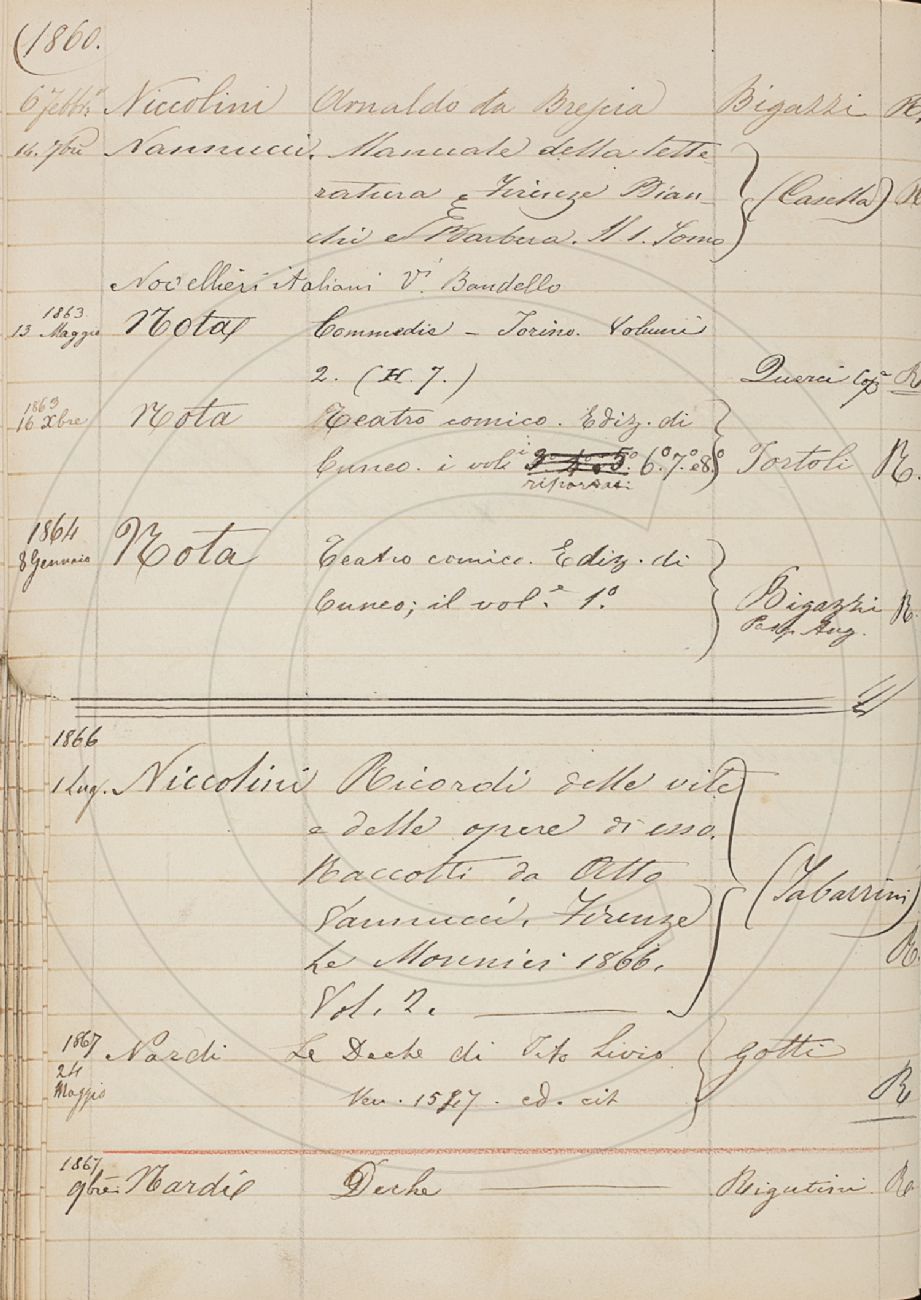 (1860.
6 Febb.º Niccolini Arnaldo da Brescia Bigazzi R.
14. 7bre Nannucci. Manuale della lette-
ratura Firenze Bian- (Casella) R
chi e Barbera. Il 1. Tomo
Novellieri italiani V. Bandello
1863
13 Maggio Nota Commedie – Torino. Volumi
2. (H. 7.) Querci Cop.e R
1863
16 Xbre Nota Teatro comico. Ediz. di
Cuneo. i voli 3º 4º e 5º. 6º. 7º. e 8º Tortoli R.
riportati
1864
8 Gennaio Nota Teatro comico. Ediz. di
Cuneo; il vol.e 1º. Bigazzi R.
Pasq. Aug.
1866
1 Lug. Niccolini Ricordi delle vite
e delle opere di esso.
Raccolti da Atto (Tabarrini)
Vannucci. Firenze
Le Monnier 1866. R.
Vol. 2.
1867
24 Maggio Nardi Le Deche di Tito Livio Gotti
Ven. 1547. ed. cit R
1867
9bre. Nardi Deche Rigutini R